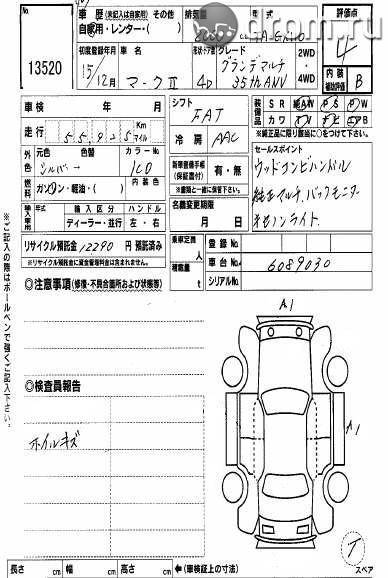 No.
13520
車歴(未記入は自家用) その他
自家用・レンター・( )
排気量
2000 cc
TA-GX110
評価点
4
内装
補助評価
B
初度登録年月
15/12月
車名
マークⅡ
形状ドア数
4D
グレード
グランデマルチ
35th ANV
2WD・4WD
車検 年 月
シフト
FAT
装備品
S R 純 A W P S P W
カワ エ B
※純正品に限り鑑別に○をつけて下さい。
走行
55,925
Km
マイル
冷房
AAC
セールスポイント
ウッドコンビハンドル
純正マルチ、バックモニター
キセノンライト
外色
元色 色替 カラーNo
シルバー→ 1C0
新車整備手帳
(保証書付)
有・無
※書類と一緒に提出して下さい。
燃料
ガソリン・軽油・( )
内装色
名義変更期限
月 日
輸入車用
年式 輸入区分 ハンドル
ディーラー・並行 左・右
乗車定員
人
登録No.
リサイクル預託金 12290 円 預託済み
※リサイクル預託金に資金管理料金は含まれません。
積載量
t
車台No.
6089030
シリアルNo.
◎注意事項(修復・不具合箇所および状態等)
◎検査員報告
ホイルキズ
A1
A1
T
スペア
長さ cm 幅 cm 高さ cm ◀(車検証上の寸法)
※ご記入の際はボールペンで強くご記入下さい。
drom.ru